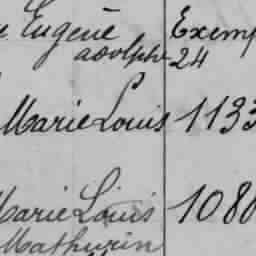 Eugène Exemp
adolphe 24
Marie Louis 1133
Marie Louis 108
Mathurin